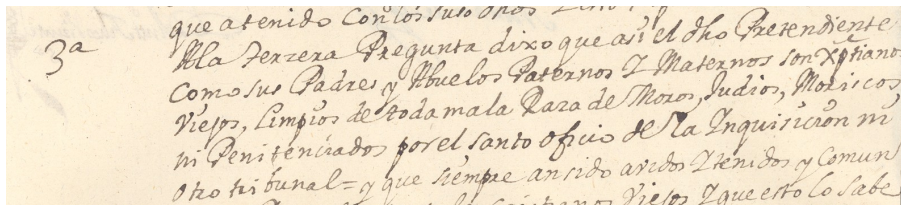 que a tenido con los suso dhos
3ª
A la Terzera Pregunta dixo que asi el dho Pretendiente
como sus Padres y Abuelos Paternos Y Maternos son Xptianos
Viejos, Limpios de toda mala Raza de Moros, Judios, Moriscos,
ni Penitenciados por el santo oficio de la Inquisicion ni
otro tribunal = y que siempre an sido avidos Y tenidos y Comun
Cristianos Viejos Y que esto lo sabe